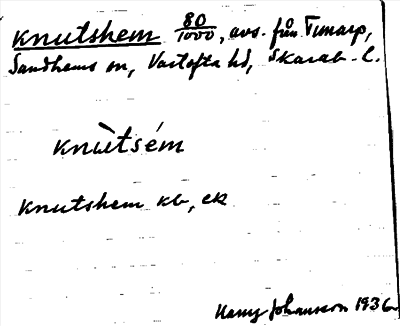 Knutshem 80/1000, avs. från Timarp,
Sandhems sn, Vartofta hd, Skarab. l.
knùtsém
Knutshem kb, ek
Harry Johansson 1936